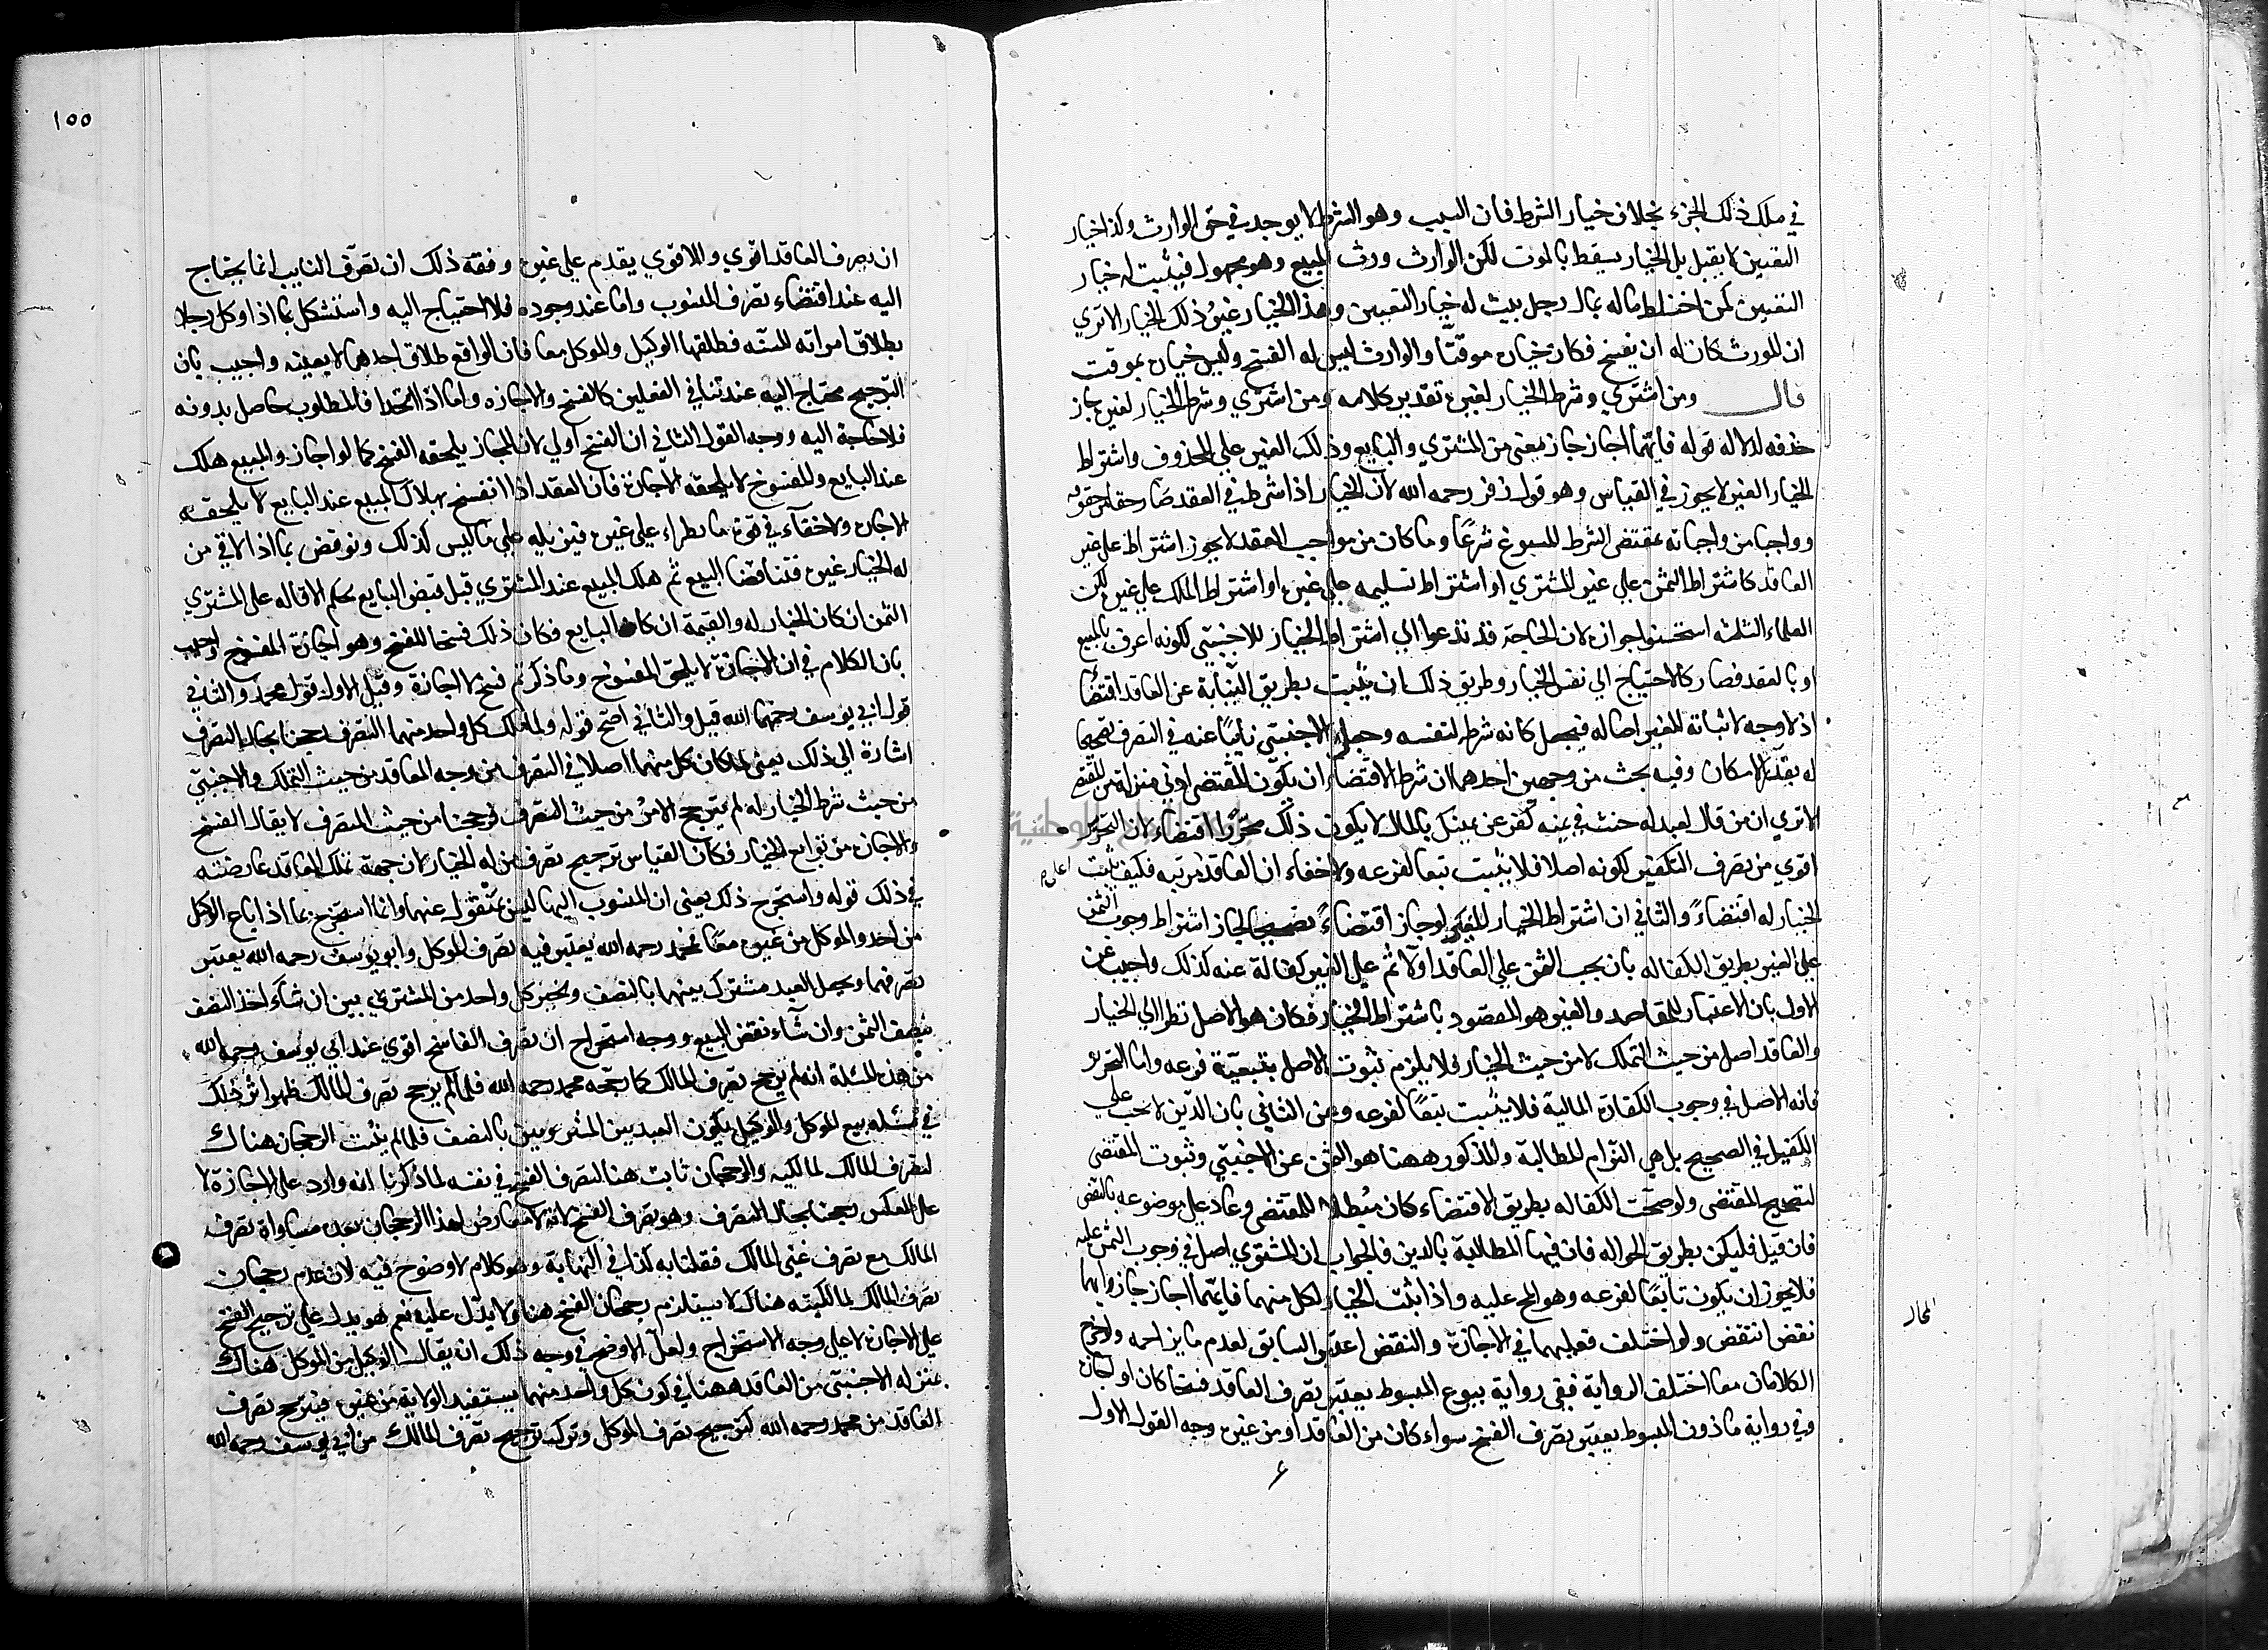 في ملك ذلك الجزء بخلاف خيار الشرط فان السبب وهو الشرط لا يوجد في حق الوارث وكذا خيار
التعيين لا يقبل بل الخيار سقط بالموت لكن الوارث ورث المبيع وهو مجهول فيثبت له خيار
التعيين كمن اختلط ماله بمال رجل يثبت له خيار التعيين وهذا الخيار غير ذلك الخيار الا تري
ان المورث كان له ان يفسخ فكان خياره موقتا والوارث ليس له الفسخ وليس خياره بموقت
قال ومن اشتري وشرط الخيار لغيره تقدير كلامه ومن اشتري وشرط الخيار لغيره جاز
حذفه لدلاله قوله فايهما اجاز جاز يعني من المشتري والبايع وذلك الغير علي المحذوف واشتراط
الخيار لغير لا يجوز في القياس وهو قول زفر رحمه الله لان الخيار اذا شرط في العقد صار حقا من حقوقه
وواجبا من واجباته بمقتضي الشرط المسوغ شرعا وما كان من مواجب العقد لا يجوز اشتراطه علي غير
العاقد كاشتراط الثمن علي غير المشتري او اشتراط تسليمه علي غيره او اشتراط الملك علي غيره لكن
العلماء الثلثه استحسنوا جوازه لان الحاجة قد تدعوا الي اشتراط الخيار للاجنبي لكونه اعرف بالمبيع
او بالعقد فصار كالاحتياج الي نفس الخيار وطريق ذلك ان يثبت بطريق النيابة عن العاقد اقتضا
اذ لا وجه لاثباته للغير اصاله فيجعل كانه شرطه لنفسه وجعل الاجنبي نايبا عنه في التصرف تصحيحا
له بقدر الامكان وفيه بحث من وجهين احدهما ان شرط الاقتضاء ان يكون المقتضي ادني منزلة من المقتضي
الا تري ان من قال لعبد له حنث في يمينه كفر عن يمينك بالمال لا يكون ذلك محررا اقتضاء لان التحرير
اقوي من تصرف التكفير لكونه اصلا فلا يثبت تبعا لفرعه ولا خفاء ان العاقد مرتبه فكيف يثبت
اعلي
الخيار له اقتضاء والثاني ان اشتراط الخيار للغير لو جاز اقتضاء تصحيحا لجاز اشتراط وجوب الثمن
علي الغير بطريق الكفاله بان يجب الثمن علي العاقد اولا ثم علي الغير كفالة عنه كذلك واجيب عن
الاول بان الاعتبار للمقاصد والغير هو المقصود باشتراط الخيار فكان هو الاصل نظرا الي الخيار
والعاقد اصل من حيث التملك لا من حيث الخيار فلا يلزم ثبوت الاصل بتبعية فرعه واما التحرير
فانه الاصل في وجوب الكفارة المالية فلا يثبت تبعا لفرعه وعن الثاني بان الدين لا يجب علي
الكفيل في الصحيح بل هي التزام المطالبة والمذكور ههنا هو الثمن عن الاجنبي وثبوت المقتضي
لتصحيح المقتضي ولو صحت الكفاله بطريق الاقتضاء كان مبطلا للمقتضي وعاد علي موضوعه بالنقض
فان قيل فليكن بطريق الحواله فان فيها المطالبة بالدين فالجواب ان المشتري اصل في وجوب الثمن عليه
فلا يجوز ان يكون تابعا لفرعه وهو المحال عليه واذا ثبت الخيار لكل منهما فايهما اجاز جاز وايهما
المحال
نقض انتقض ولو اختلف فعليهما في الاجازة والنقض اعتبر السابق لعدم ما يزاحمه ولو خرج
الكلامان معا اختلف الرواية ففي رواية بيوع المبسوط يعتبر تصرف العاقد فسخا كان او اجازة
وفي رواية ماذون المبسوط يعتبر تصرف الفسخ سواء كان من العاقد او من غيره وجه القول الاول
١٥٥
ان تصرف العاقد اقوي والاقوي يقدم علي غيره وفقه ذلك ان تصرف النايب انما يحتاج
اليه عند اقتضاء تصرف المنوب واما عند وجوده فلا احتياج اليه واستشكل بما اذا وكل رجلا
بطلاق امراته للسنه فطلقها الوكيل والموكل معا فان الواقع طلاق احدهما لا بعينه واجيب بان
الترجيح محتاج اليه عند تنافي الفعلين كالفسخ والاجازه واما اذا اتحدا فالمطلوب حاصل بدونه
فلا حاجة اليه ووجه القول الثاني ان الفسخ اولي لان المجاز يلحقه الفسخ كما لو اجاز والمبيع هلك
عند البايع والمفسوخ لا يلحقه الاجازة فان العقد اذا انفسخ بهلاك المبيع عند البايع لا يلحقه
الاجازه ولا خفاء في قوة ما يطراء علي غيره فيزيله علي ما ليس كذلك ونوقض بما اذا لاقي من
له الخيار غيره فتناقضا البيع ثم هلك المبيع عند المشتري قبل قبض البايع بحكم الاقاله علي المشتري
الثمن ان كان الخيار له والقيمة ان كان للبايع فكان ذلك فسخا للفسخ وهو اجازة المفسوخ واجيب
بان الكلام في ان الاجازة لا يلحق المفسوخ وما ذكرتم فسخ لا اجازة وقيل الاول قول محمد والثاني
قول ابي يوسف رحمهما الله قيل والثاني اصح قوله ولما ملك كل واحد منهما التصرف رجحنا بحال التصرف
اشارة الي ذلك يعني لما كان كل منهما اصلا في التصرف من وجه العاقد من حيث التملك والاجنبي
من حيث شرط الخيار له لم يترجح الامر من حيث التصرف فرجحنا من حيث التصرف لا يقال الفسخ
والاجازه من توابع الخيار فكان القياس ترجيح تصرف من له الخيار لان جهة تملك العاقد عارضته
في ذلك قوله واستخرج ذلك يعني ان المنسوب اليهما ليس بمنقول عنهما وانما استخرج مما اذا باع الوكيل
من احد والموكل من غيره معا فمحمد رحمه الله يعتبر فيه تصرف الموكل وابو يوسف رحمه الله يعتبر
تصرفهما ويجعل العبد مشتركا بينهما بالنصف ويخير كل واحد من المشتريين بين ان شاء اخذ النصف
بنصف الثمن وان شاء نقض البيع ووجه استخراج ان تصرف الفاسخ اقوي عند ابي يوسف رحمه الله
من هذه المسئلة انه لم يرجح تصرف المالك كما رجحه محمد رحمه الله فلما لم يرجح تصرف المالك ظهر اثر ذلك
في مسئلة بيع الموكل والوكيل بكون العبد بين المشتريين بالنصف فلما لم يثبت الرجحان هناك
لتصرف المالك لمالكيه والرجحان ثابت هنا لتصرف الفسخ في نفسه لما ذكرنا انه وارد علي الاجازة لا
علي العكس رجحنا بحال التصرف وهو تصرف الفسخ لانه لا معارض لهذا الرجحان بعد مساواة تصرف
المالك مع تصرف غير المالك فقلنا به كذا في النهاية وهو كلام لا وضوح فيه لان عدم رجحان
تصرف المالك لمالكيته هناك لا يستلزم رجحان الفسخ هنا ولا يدل عليه نعم هو يدل علي ترجيح الفسخ
علي الاجازه لا علي وجه الاستخراج ولعل الاوضح في وجه ذلك ان يقال الوكيل من الموكل هناك
بمنزله الاجنبي من العاقد ههنا في كون كل واحد منهما يستفيد الولاية من غيره فيترجح تصرف
العاقد من محمد رحمه الله كترجيح تصرف الموكل وترك ترجيح تصرف المالك من ابي يوسف رحمه الله